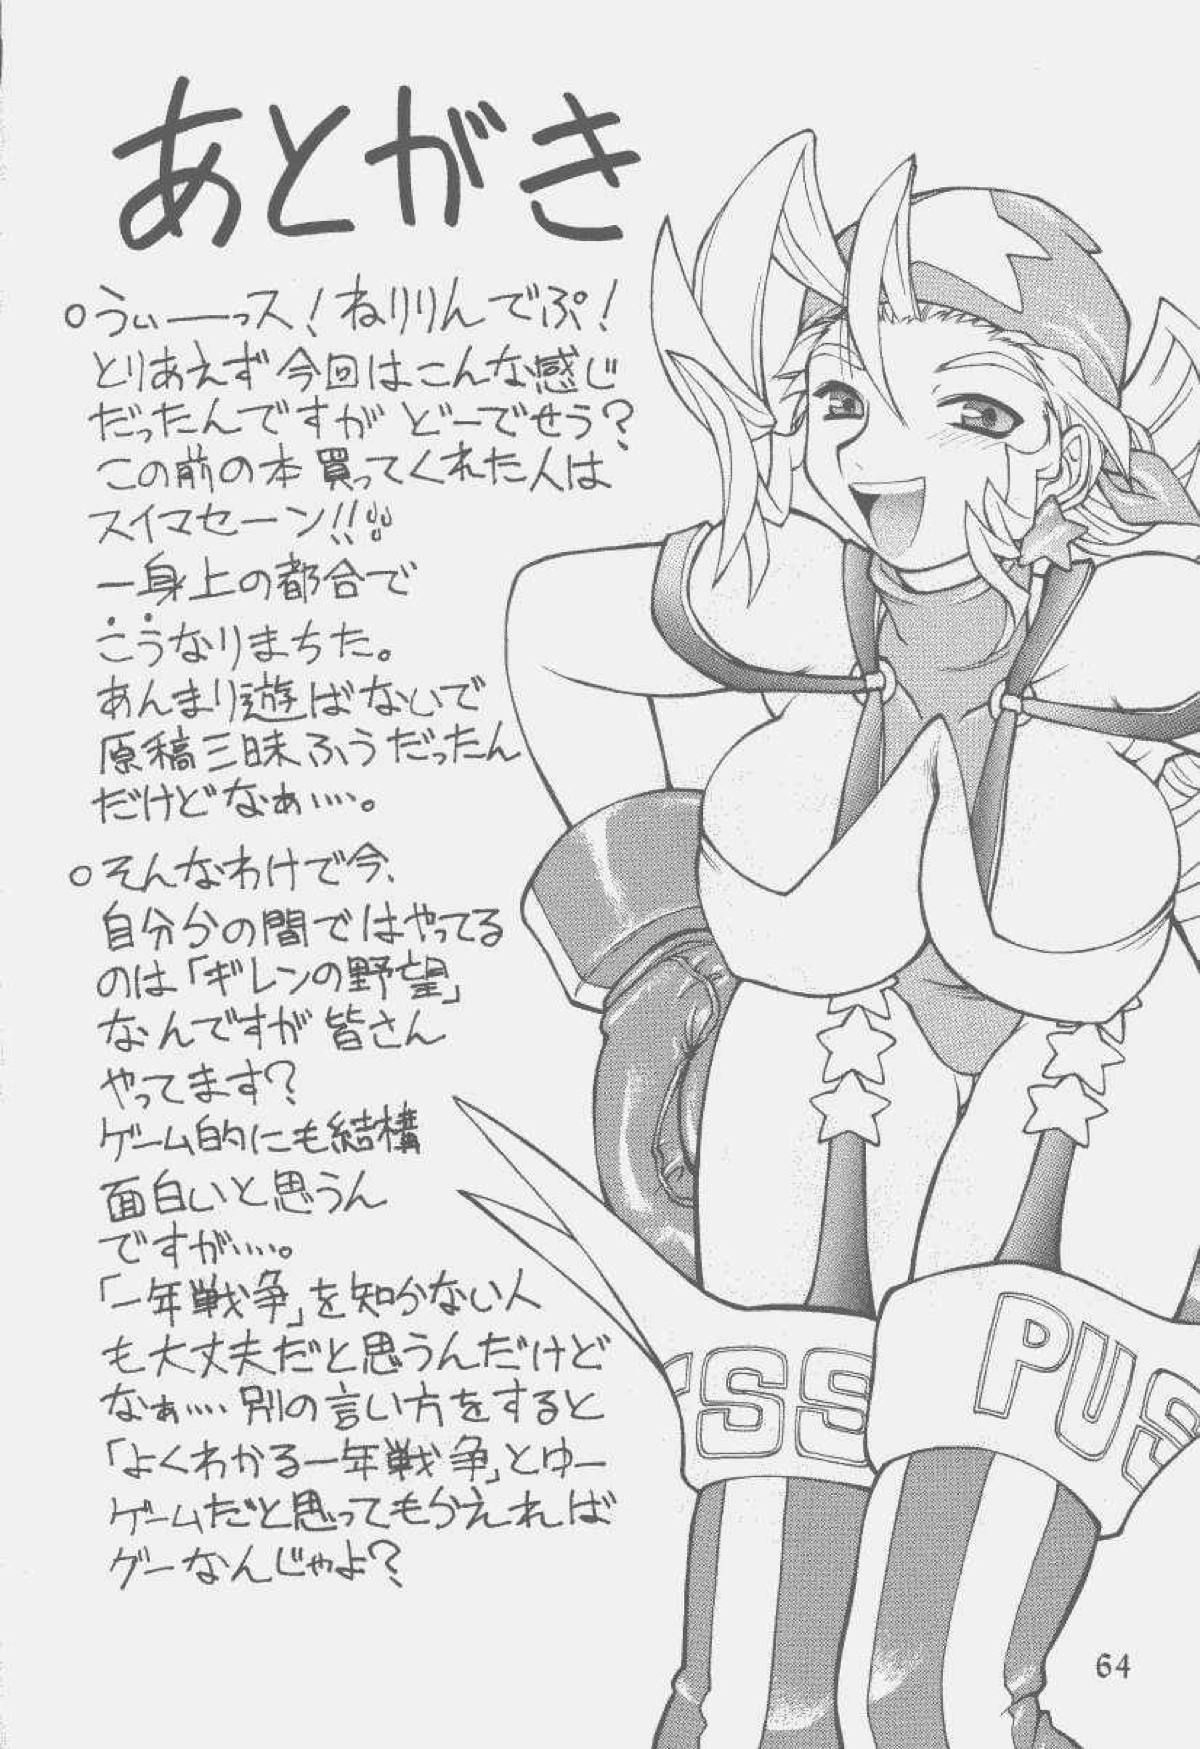 あとがき
○うぃーっス!ねりりんでぷ!
とりあえず今回はこんな感じ
だったんですがどーでせう?
この前の本買ってくれた人は
スイマセーン!!
一身上の都合で
こうなりまちた。
あんまり遊ばないで
原稿三昧ふうだったん
だけどなぁ…。
○そんなわけで今、
自分かの間ではやってる
のは「ギレンの野望」
なんですが皆さん
やってます?
ゲーム的にも結構
面白いと思うん
ですが…。
「一年戦争」を知らない人
も大丈夫だと思うんだけど
なぁ…別の言い方をすると
「よくわかる一年戦争」とゆー
ゲームだと思ってもらえれば
グーなんじゃよ?
ISS
PUS
64